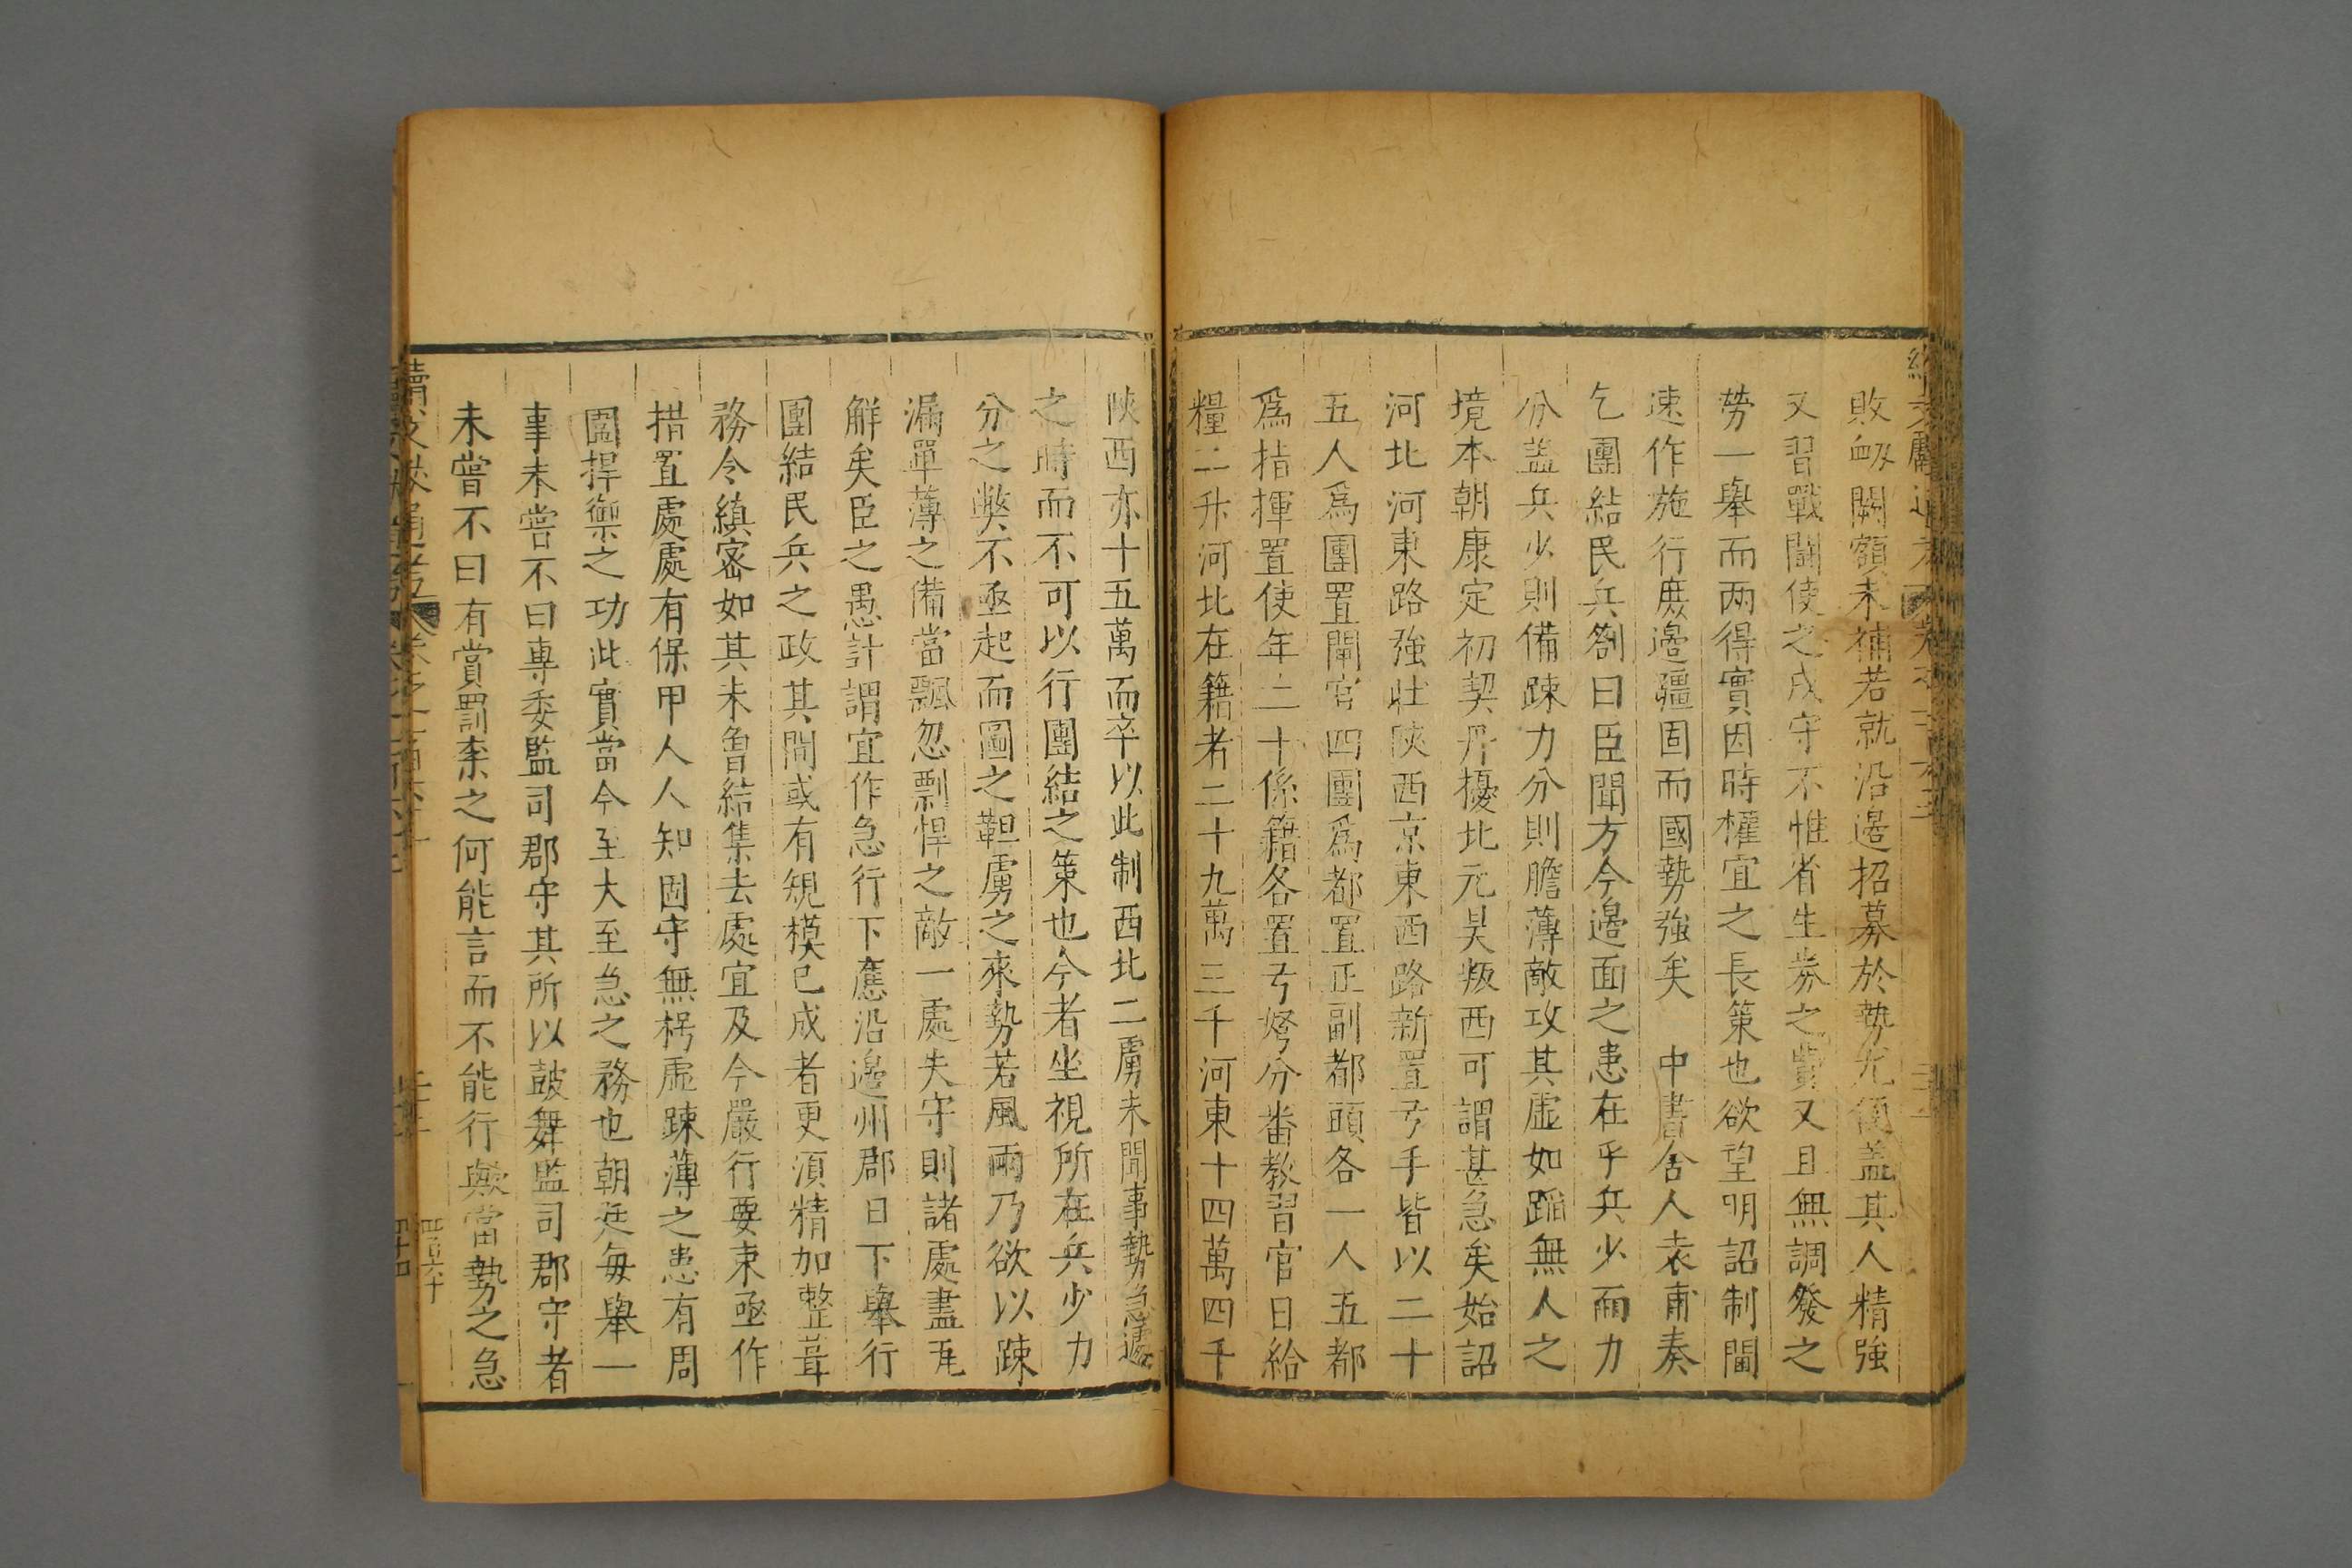 敗衂闕額未補若就沿邊招募於勢尤便蓋其人精強
又習戰鬪使之戍守不惟省生券之費又且無調發之
勞一舉而兩得實因時權宜之長策也欲望明詔制閫
速作施行庶邊疆固而國勢強矣 中書舍人袁甫奏
乞團結民兵劄曰臣聞方今邊面之患在乎兵少而力
分蓋兵少則備踈力分則膽薄敵攻其虛如蹈無人之
境本朝康定初契丹擾北元昊叛西可謂甚急矣始詔
河北河東路強壯陜西京東西路新置弓手皆以二十
五人爲團置閘官四團爲都置正副都頭各一人五都
爲指揮置使年二十係籍各置弓弩分番教習官日給
糧二升河北在籍者二十九萬三千河東十四萬四千
陜西亦十五萬而卒以此制西北二虜未聞事勢急遽
之時而不可以行團結之策也今者坐視所在兵少力
分之獘不亟起而圖之韃虜之來勢若風雨乃欲以踈
漏單薄之備當飄忽剽悍之敵一處失守則諸處盡瓦
解矣臣之愚計謂宜作急行下應沿邊州郡日下舉行
團結民兵之政其間或有規模已成者更湏精加整葺
務令縝密如其未曾結集去處宜及今嚴行要束亟作
措置處處有保甲人人知固守無枵虛踈薄之患有周
圍捍禦之功此實當今至大至急之務也朝廷每舉一
事未嘗不曰專委監司郡守其所以鼓舞監司郡守者
未嘗不曰有賞罰柰之何能言而不能行歟當勢之急